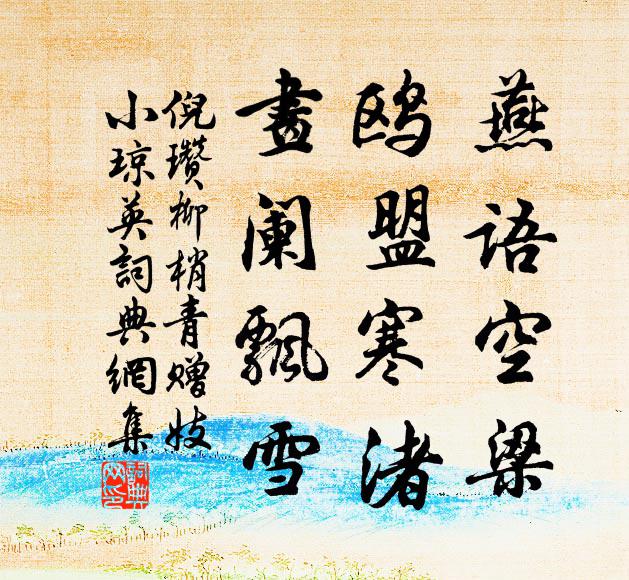 燕语空梁
鸥盟寒渚
畫阑飄雪
倪瓚柳梢青赠妓
小琼英詞典網集